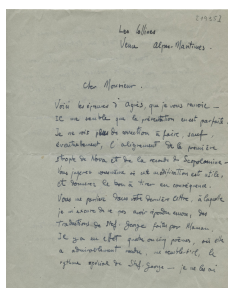 [1935]
Les Collines
Vence Alpes-Maritimes
Cher Monsieur
Voici les épreuves d'Agnès, que je vous renvoie —
Il me semble que la présentation en est parfaite.
Je ne vois plus de correction à faire, sauf
éventuellement, l'alignement de la première
strophe de Nova et de la
Vous jugerez vous même si une modification est utile,
et donnerez le bon à tirer en conséquence.
Vous me parlez dans votre dernière lettre, à laquelle
je m'excuse de ne pas avoir répondu encore, des
traductions de Stef. George faites par
Il y a en effet quatre ou cinq poèmes, où il a
admirablement rendu, me semble-t-il, le
rythme spécial de Stef. George — je ne les ai